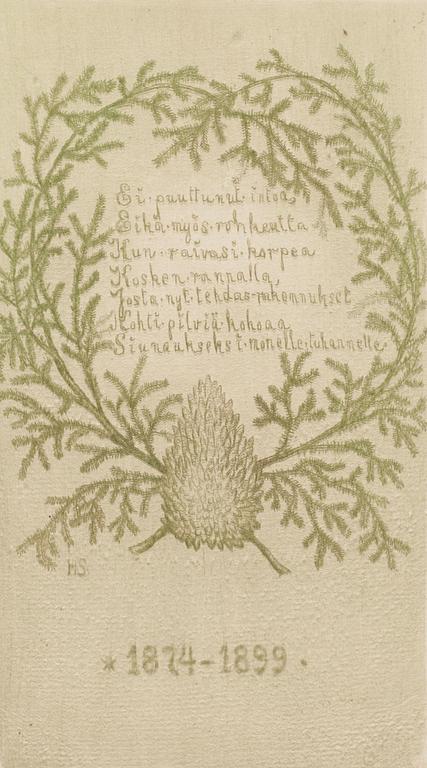 Ei puuttunut intoa,
Eikä myös rohkeutta
Kun raivasi korpea
Kosken rannalla,
Josta nyt tehdas-rakennukset
Kohti pilviä kohoaa
Siunaukseksi monelle tuhannelle.
HS
* 1874-1899 ·